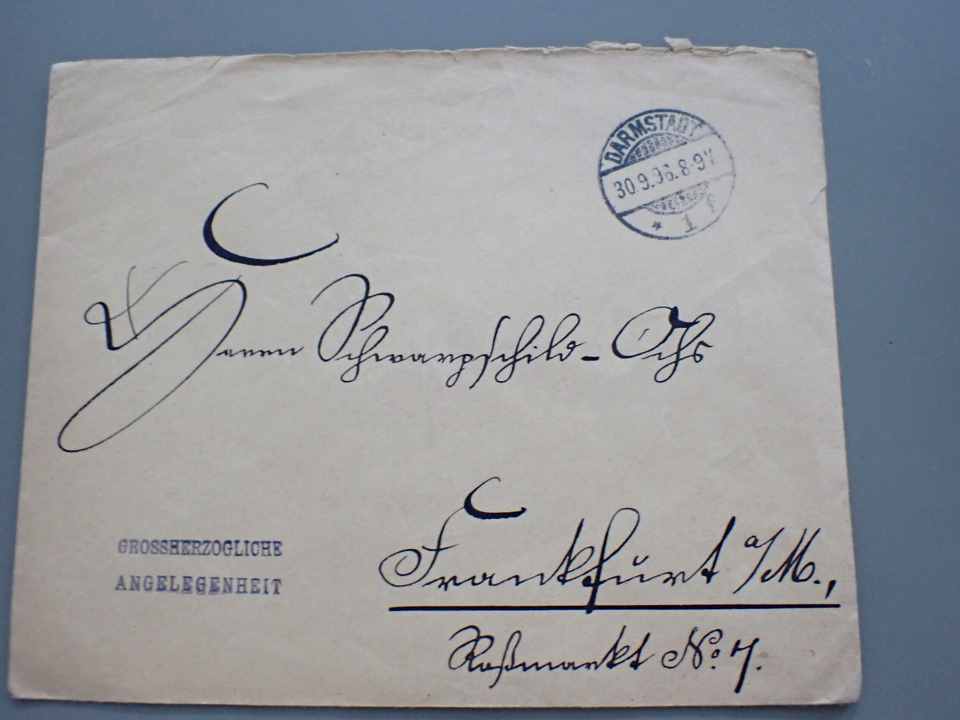 DARMSTADT
30.9.96.8-9V
* 1 f
Herrn Schwarzschild-Ochs
GROSSHERZOGLICHE
ANGELEGENHEIT
Frankfurt a/M.,
Roßmarkt No. 7.